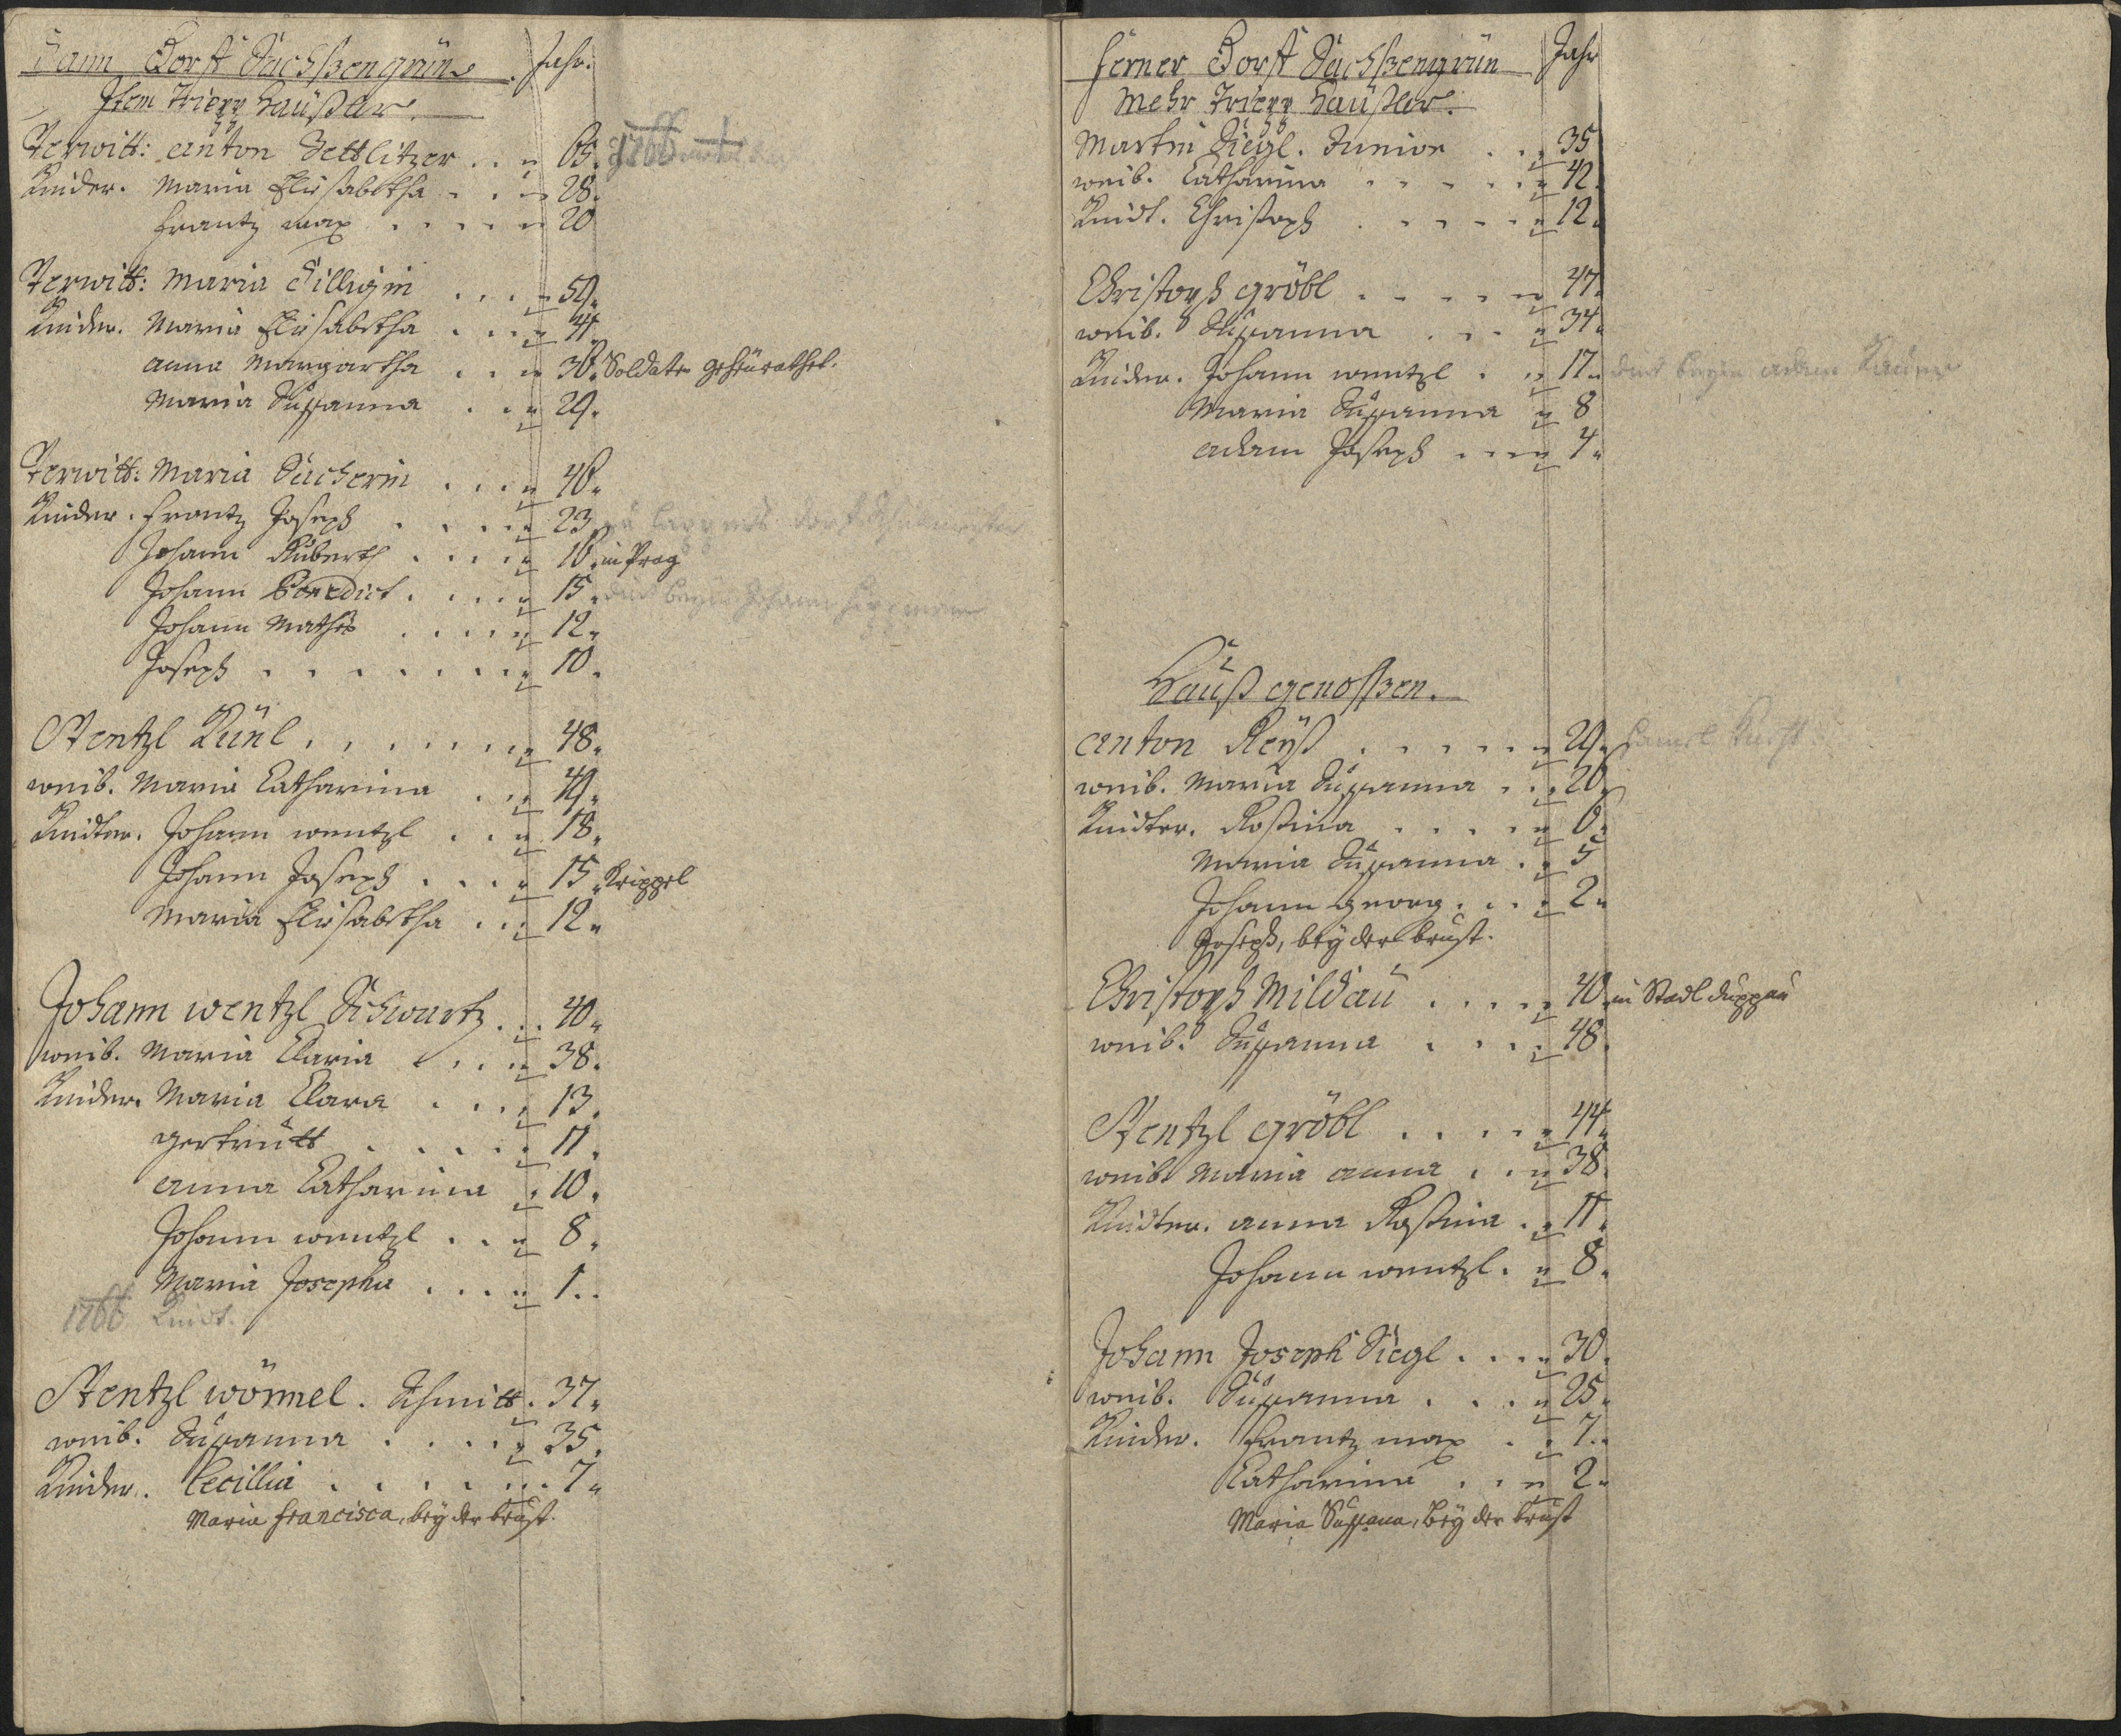 Dann Dorff Sachßengrün. Jahr.
Item Trierr Haußler.
Verwitt: Anton Dettlitzer 65. 1766
Kinder. Maria Elisabetha 28.
Frantz Max 20
Verwitt: Maria Dilligin 59.
Kinder. Maria Elisabetha 41.
Anna Margaretha 36. Soldaten geheurathet.
Maria Susanna 29.
Verwitt: Maria Sucherin 46.
Kinder. Frantz Joseph 23.
Johann Ruberth 16. in Prag
Johann Benedict 15. dint beym Johann
Johann Mathes 12.
Joseph 10.
Wentzl Künl 48.
weib. Maria Catharina 49.
Kinder. Johann Wentzl 18.
Johann Joseph 15. Krippel
Maria Elisabetha 12.
Johann Wentzl Schwartz 40.
weib. Maria Claria 38.
Kinder. Maria Clara 13.
Gertrutt 11.
Anna Catharina 10.
Johann Wentzl 8.
Maria Josepha 1.
1766 Kindt.
Wentzl Wömmel. Schmitt. 37.
weib. Susanna 35.
Kinder. Cecillia 7.
Maria Francisca, bey der brust.
Ferner Dorff Sachßengrün Jahr
Mehr Trierr Haußler.
Martin Siegl. Junior 35
weib. Catharina 42.
Kindt. Christoph 12.
Christoph Gröbl 47.
weib. Susanna 34.
Kinder. Johann Wentzl 17. dint beym Adam
Maria Susanna 8
Adam Joseph 4.
Hauß genoßen.
Anton Reyß 29.
weib. Maria Susanna 20.
Kinder. Rosina 6.
Maria Susanna 5
Johann Georg 2.
Joseph, bey der brust.
Christoph Mildau 40 in Stadl Duppau
weib. Susanna 48.
Wentzl Gröbl 44.
weib Maria Anna 38.
Kinder. Anna Rosina 11.
Johann Wentzl 8.
Johann Joseph Siegl 30.
weib. Susanna 25.
Kinder. Frantz Max 7.
Catharina 2.
Maria Susana, bey der brust